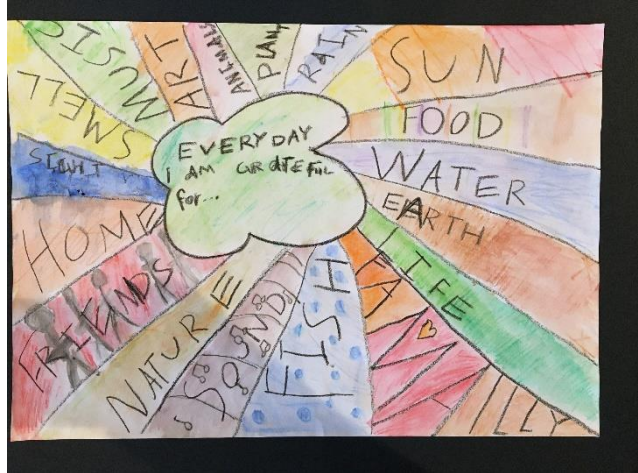 EVERYDAY
I AM GRATEFUL
for...
SUN
FOOD
WATER
EARTH
LIFE
FAMILLY
FISH
SOUND
NATURE
FRIENDS
HOME
SIGHT
SMELL
MUSIC
ART
ANIMALS
PLANT
RAIN